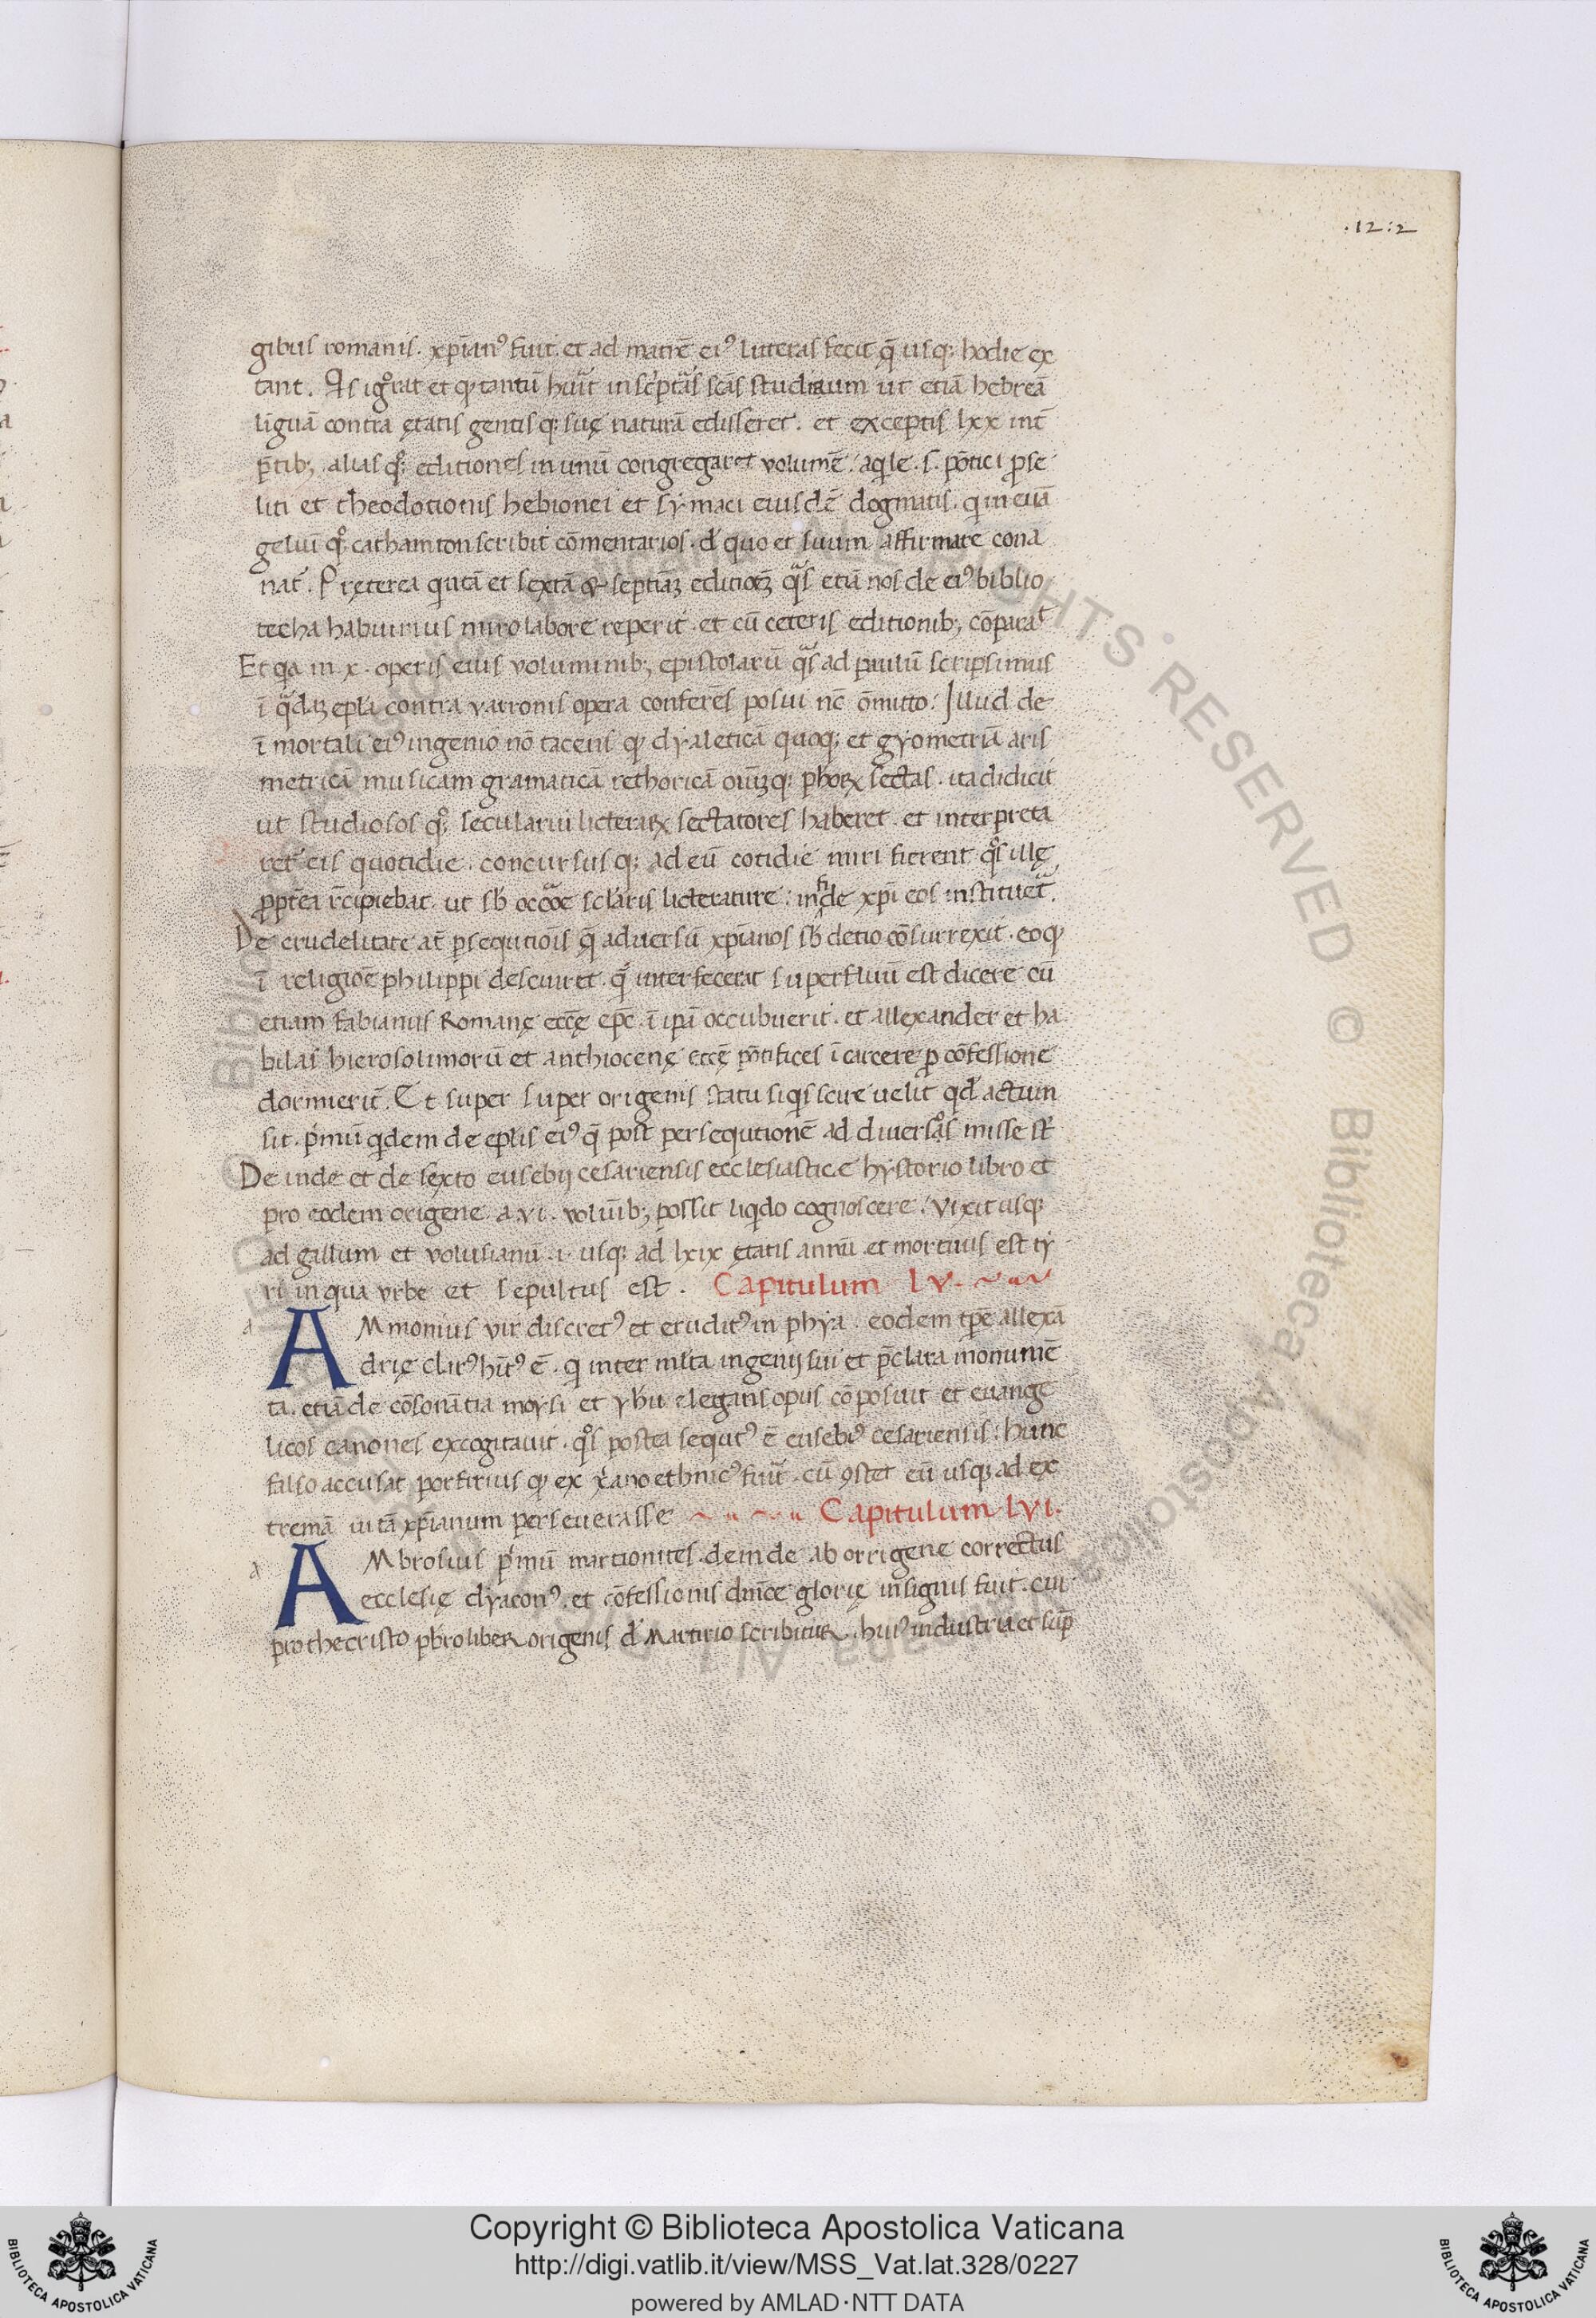 .12:2
gibus romanis. xp̄ianꝰ fuit. et ad matrē eiꝰ litteras fecit q̄ usq; hodie ex
tant. Qs igͦrat et qͥ tantū huīt in sc̄ptᵃs sc̄as studiaum ut etiā hebreā
linguā contra ętatis gentisq; suę naturā edisseret. et exceptis lxx int̄
p̄tib; alias qͦ; editiones in unū congregaret volumē. aqͥle. s. pōtici p̄se
liti et theodotionis hebionei et symaci eiusdē dogmatis. qͥ in euā
geliū qͦ; cathamton scribit cōmentarios. d̄ quo et suum affirmare cona
nat̄. Pręterea qͥntā et sextā et septimāꝫ editioēꝫ qᵃs etiā nos de eiꝰ biblio
techa habuimus miro labore reperit. et cū ceteris editionib; cōparaᵗ
Et qͥa in x. operis eius voluminib; epistolarū qᵃs ad paulū scripsimus
ī qᵃdaꝫ epl̄a contra varronis opera conferēs posui nc̄ ōmitto. Illud de
ī mortali eiꝰ ingenio nō tacens qͥ dyaleticā quoq; et gyometriā aris
metricā musicam gramaticā rethoricā oīuꝫq; ph̄oꝝ sectas. ita didicit
ut studiosos qͦ; secularium licterarꝝ sectatores haberet. et interpreta
ret̄ eis quotidie. concursusq; ad eū cotidie miri fierent. qͦs illę
ꝓpt̄ea r̄cipiebat. ut sb̄ occōe sclaris licterature. in fide xp̄i eos instituet̄.
De crudelitate at̄ p̄sequtiōis q̄ aduersū xp̄ianos sb̄ detio cōsurrexit. eo qͥ
ī religioē philippi desciuret. quē interfecerat superfluū est dicere cū
etiam fabianus Romanę eccę ep̄c. ī ip̄a occubuerit. et allexander et ba
bilas hierosolimorū et anthiocenę eccę pōtifices ī carcere ꝓ cōfessione
dormierīt. Et super super origenis statu siqͥs scire uelit qd̄ actum
sit. pͥmū qͥdem de ep̄lis eiꝰ q̄ post persequtionē ad diuersᵒs misse sūt
De inde et de sexto eusebij cesariensis ecclesiastice hystorio libro et
pro eodem origene. a. vi. volum̄b; possit liqͥdo cognoscere. vixit usq;
ad gallum et volusianū. i. usq; ad lxix ętatis annū. et mortuus est ty
ri in qua vrbe et sepultus est. Capitulum LV.
a AMmonius vir discretꝰ et eruditꝰ in ph̄ya. eodem tp̄e allexā
drię clarꝰ hītꝰ ē. qͥ inter ml̄ta ingenij sui et p̄clara monumē
ta. etiā de cōsonātia moysi et yhū elegans opus cōposuit et euange
licos canones excogitauit. qͦs postea sequtꝰ ē eusebiꝰ cesariensis. Hunc
falso accusat porfirius qͥ ex xp̄ano ethnicꝰ fuīt. cū ꝯstet eū usq; ad ex
tremā uitā xp̄ianum perseuerasse Capitulum LVI.
a AMbrosius pͥmū marcionites. deinde ab orrigene correctus
ecclesię dyaconꝰ. et cōfessionis dn̄ice glorię insignis fuit. cui
prothecristo pb̄ro liber origenis d̄ Martirio scribitur. huiꝰ industria et sūp
Copyright © Biblioteca Apostolica Vaticana
http://digi.vatlib.it/view/MSS_Vat.lat.328/0227
powered by AMLAD·NTT DATA